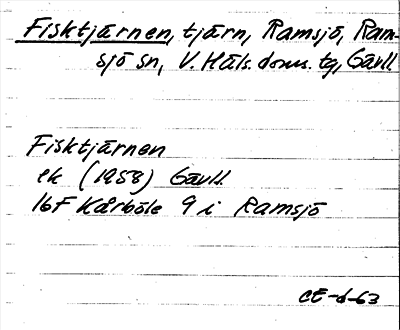 Fisktjärnen, tjärn, Ramsjö, Ram-
sjö sn, V. Häls. doms. tg, Gävll
Fisktjärnen
ek (1958) Gävll.
16F Kårböle 9 i Ramsjö
CE-d-63